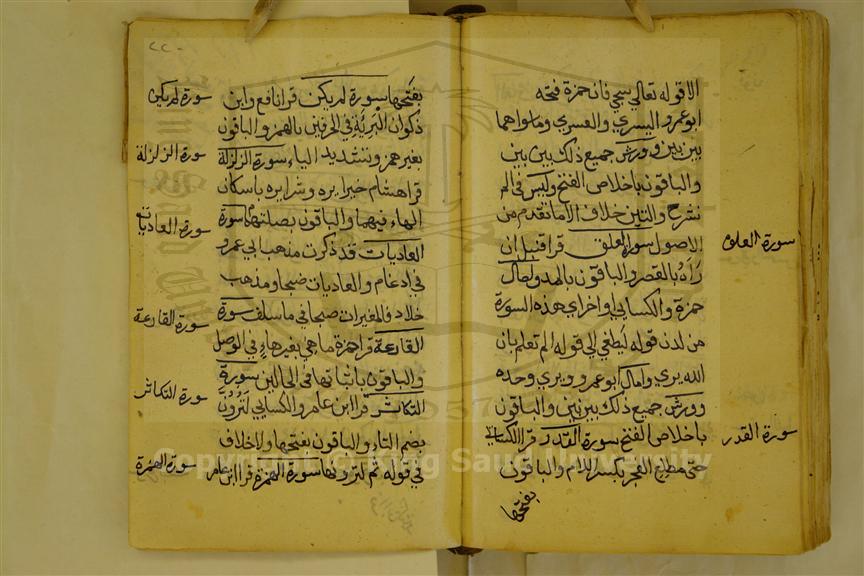 الا قوله تعالى سجي فان حمزة فتحه
ابوعمرو اليسري والعسري وما سواهما
بين بين وورش جميع ذلك بين بين
والباقون باخلاص الفتح وليس في الم
نشرح والتين خلاف الا ما تقدم من
الاصول سورة العلق قرا قنبل ان
سورة العلق
رَأَهُ بالقصر والباقون بالمد وامال
حمزة والكسايي اواخر اي هذه السورة
من لدن قوله ليطغي الي قوله الم تعلم بان
الله يري وامال ابوعمرو يري وحده
وورش جميع ذلك بين بين والباقون
باخلاص الفتح سورة القدر قرا الكسايي
سورة القدر
حتي مطلع الفجر بكسر اللام والباقون
بفتحها
٢٢٠
بفتحها سورة لم يكن قرا نافع وابن
سورة لم يكن
ذكوان البرية في الحرفين بالهمز والباقون
بغير همز وتشديد الياء سورة الزلزلة
سورة الزلزلة
قرا هشام خيرا يره وشرا يره باسكان
الهاء فيهما والباقون بصلتهما سورة
سورة العاديات
العاديات قد ذكرت مذهب ابي عمرو
في ادغام والعاديات ضبحا ومذهب
خلاد فالمغيرات صبحا في ما سلف سورة
سورة القارعة
القارعة قرا حمزة ما هي بغير هاءٍ في الوصل
والباقون باثباتها في الحالين سورة
سورة التكاثر
التكاثر قرا ابن عامر والكسايي لَتَرَوُنَّ
بضم التاء والباقون بفتحها ولا خلاف
في قوله ثم لترونها سورة الهمزة قرا ابن عامر
سورة الهمزة
Copyright © King Saud University
1957